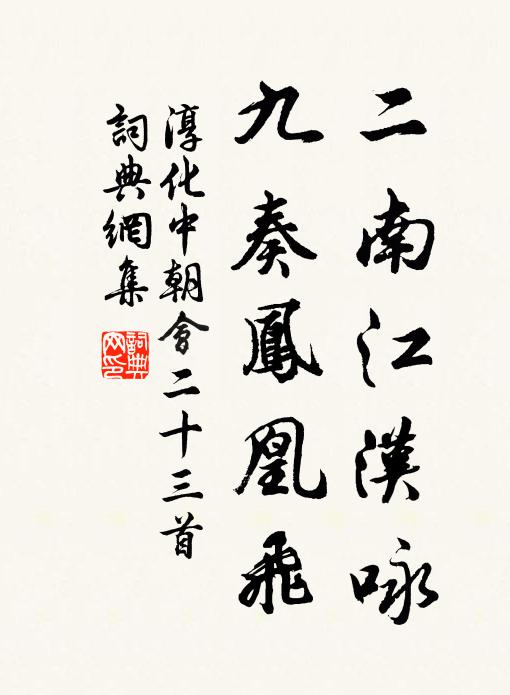 二南江漢咏
九奏鳳凰飛
淳化中朝會二十三首
詞典網集
詞典網印